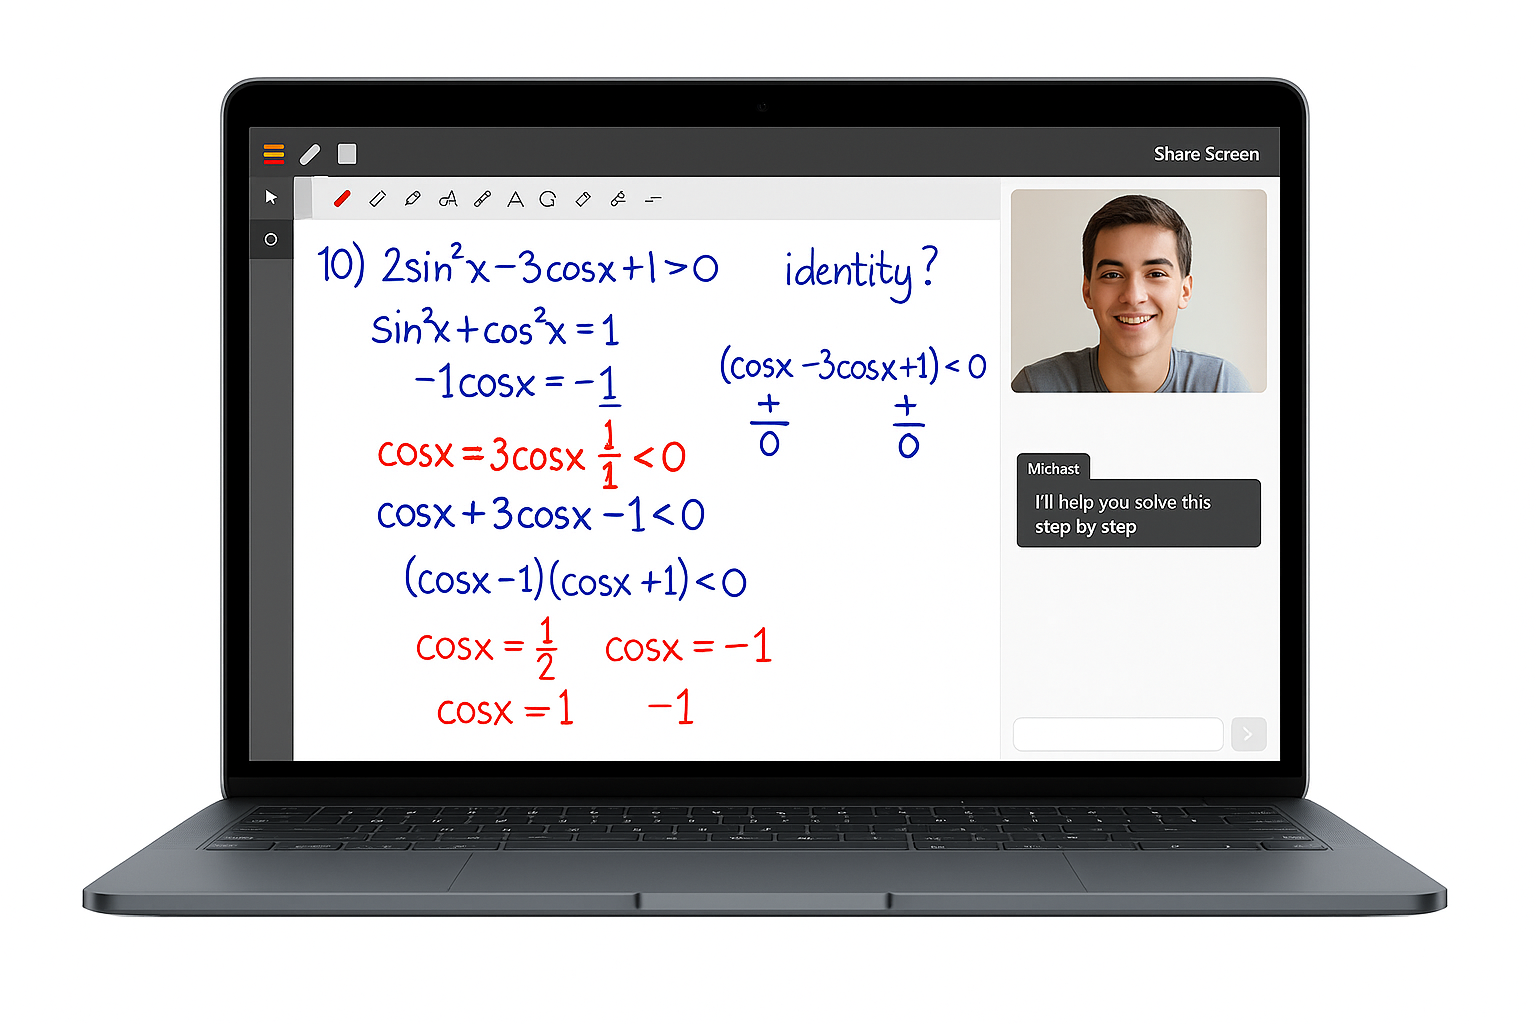 Share Screen
10) 2sin²x−3cosx+1>0
identity?
sin²x+cos²x=1
−1cosx=−1
(cosx−3cosx+1)<0
+ +
0 0
cosx=3cosx 1/1 <0
cosx+3cosx−1<0
(cosx−1)(cosx+1)<0
cosx=1/2 cosx=−1
cosx=1 −1
Michast
I'll help you solve this
step by step